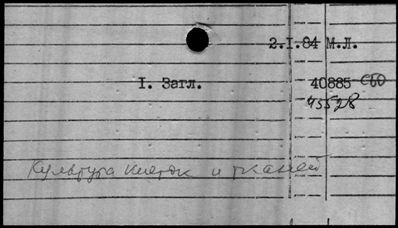 2.I.84 М.Л.
I. Загл. 40885 СБО
45528
Культура клеток и тканей